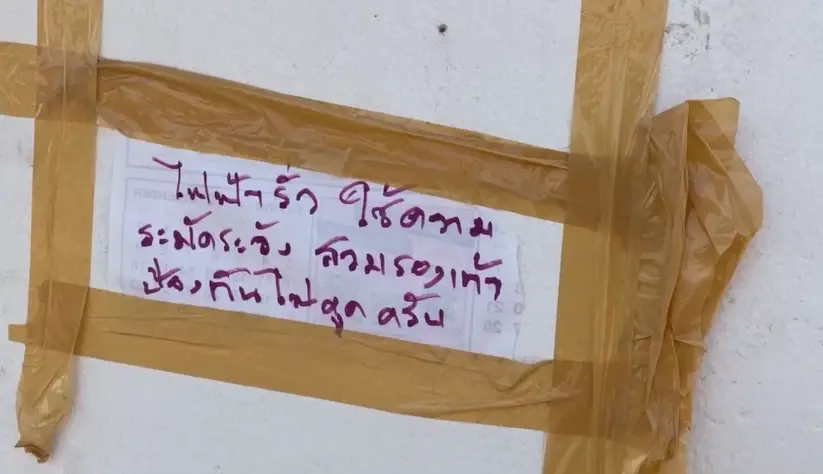 ไฟฟ้ารั่ว ใช้ความ
ระมัดระวัง สวมรองเท้า
ป้องกันไฟดูด ครับ